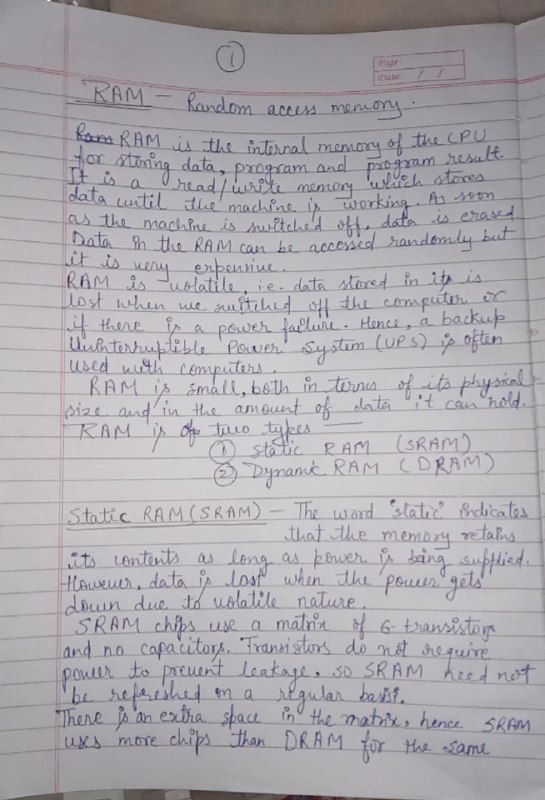 1
Page:
Date: / /
RAM - Random access memory.
Ram RAM is the internal memory of the CPU
for storing data, program and program result.
It is a read/write memory which stores
data until the machine is working. As soon
as the machine is switched off, data is erased.
Data in the RAM can be accessed randomly but
it is very expensive.
RAM is volatile, i.e. data stored in it is
lost when we switched off the computer or
if there is a power failure. Hence, a backup
Uninterruptible Power System (UPS) is often
used with computers.
RAM is small, both in terms of its physical
size and in the amount of data it can hold.
RAM is of two types —
① Static RAM (SRAM)
② Dynamic RAM (DRAM)
Static RAM (SRAM) - The word "static" indicates
that the memory retains
its contents as long as power is being supplied.
However, data is lost when the power gets
down due to volatile nature.
SRAM chips use a matrix of 6-transistors
and no capacitors. Transistors do not require
power to prevent leakage, so SRAM need not
be refreshed on a regular basis.
There is an extra space in the matrix, hence SRAM
uses more chips than DRAM for the same